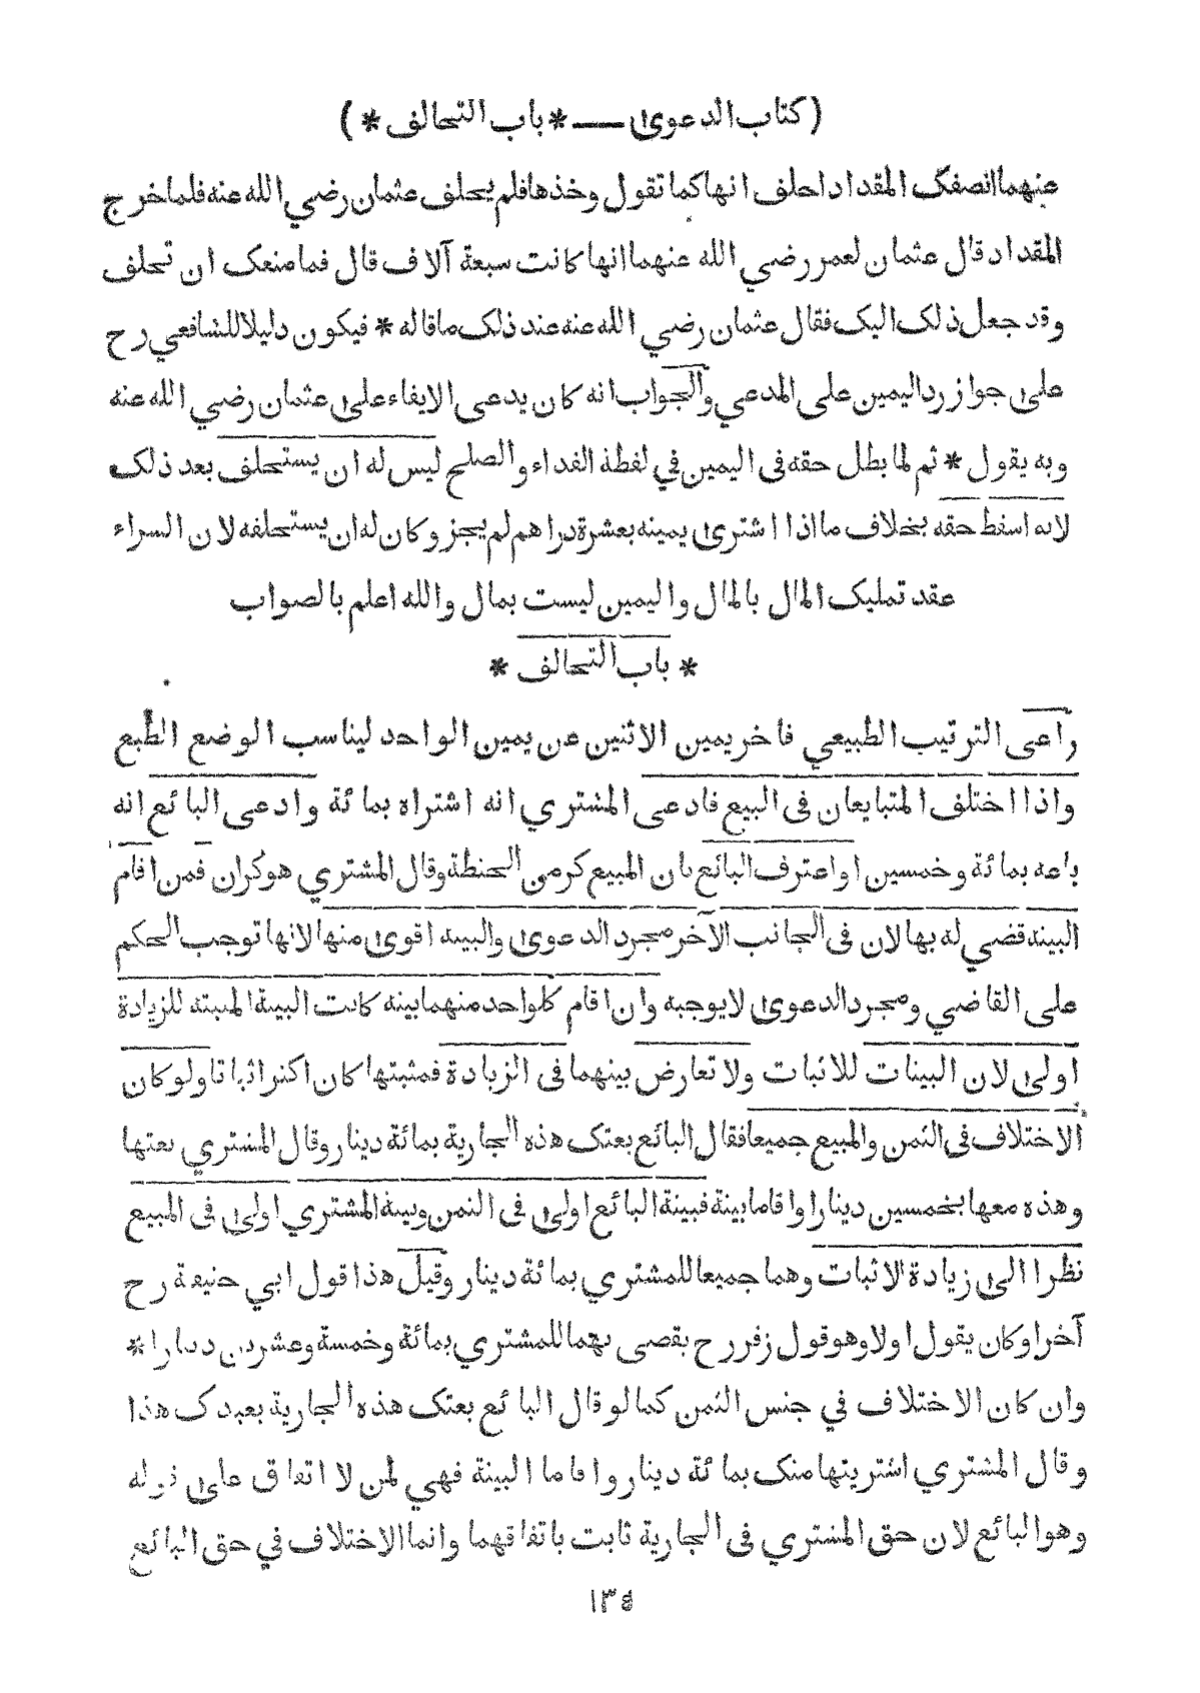 (كتاب الدعوى — * باب التحالف *)
عنهما انصفك المقداد احلف انها كما تقول وخذها فلم يحلف عثمان رضي الله عنه فلما خرج
المقداد قال عثمان لعمر رضي الله عنهما انها كانت سبعة آلاف قال فما منعك ان تحلف
وقد جعل ذلك اليك فقال عثمان رضي الله عنه عند ذلك ما قاله * فيكون دليلا للشافعي رح
على جواز رد اليمين على المدعي والجواب انه كان يدعى الايفاء على عثمان رضي الله عنه
وبه يقول * ثم لما بطل حقه فى اليمين في لفظة الفداء والصلح ليس له ان يستحلف بعد ذلك
لانه اسقط حقه بخلاف ما اذا اشترى يمينه بعشرة دراهم لم يجز وكان له ان يستحلفه لان الشراء
عقد تمليك المال بالمال واليمين ليست بمال والله اعلم بالصواب
* باب التحالف *
راعى الترتيب الطبيعي فاخر يمين الاثنين عن يمين الواحد ليناسب الوضع الطبع
واذا اختلف المتبايعان فى البيع فادعى المشتري انه اشتراه بمائة وادعى البائع انه
باعه بمائة وخمسين او اعترف البائع بان المبيع كر من الحنطة وقال المشتري هو كران فمن اقام
البينة قضي له بها لان فى الجانب الآخر مجرد الدعوى والبينة اقوى منها لانها توجب الحكم
على القاضي ومجرد الدعوى لا يوجبه وان اقام كلواحد منهما بينة كانت البينة المثبتة للزيادة
اولى لان البينات للاثبات ولا تعارض بينهما فى الزيادة فمثبتها كان اكثر اثباتا ولو كان
الاختلاف فى الثمن والمبيع جميعا فقال البائع بعتك هذه الجارية بمائة دينار وقال المشتري بعتها
وهذه معها بخمسين دينارا واقاما بينة فبينة البائع اولى فى الثمن وبينة المشتري اولى فى المبيع
نظرا الى زيادة الاثبات وهما جميعا للمشتري بمائة دينار وقيل هذا قول ابي حنيفة رح
آخرا وكان يقول اولا وهو قول زفر رح يقضى بهما للمشتري بمائة وخمسة وعشرين دينارا *
وان كان الاختلاف في جنس الثمن كما لو قال البائع بعتك هذه الجارية بعبدك هذا
وقال المشتري اشتريتها منك بمائة دينار واقاما البينة فهي لمن لا اتفاق على قوله
وهو البائع لان حق المشتري فى الجارية ثابت باتفاقهما وانما الاختلاف في حق البائع
١٣٤